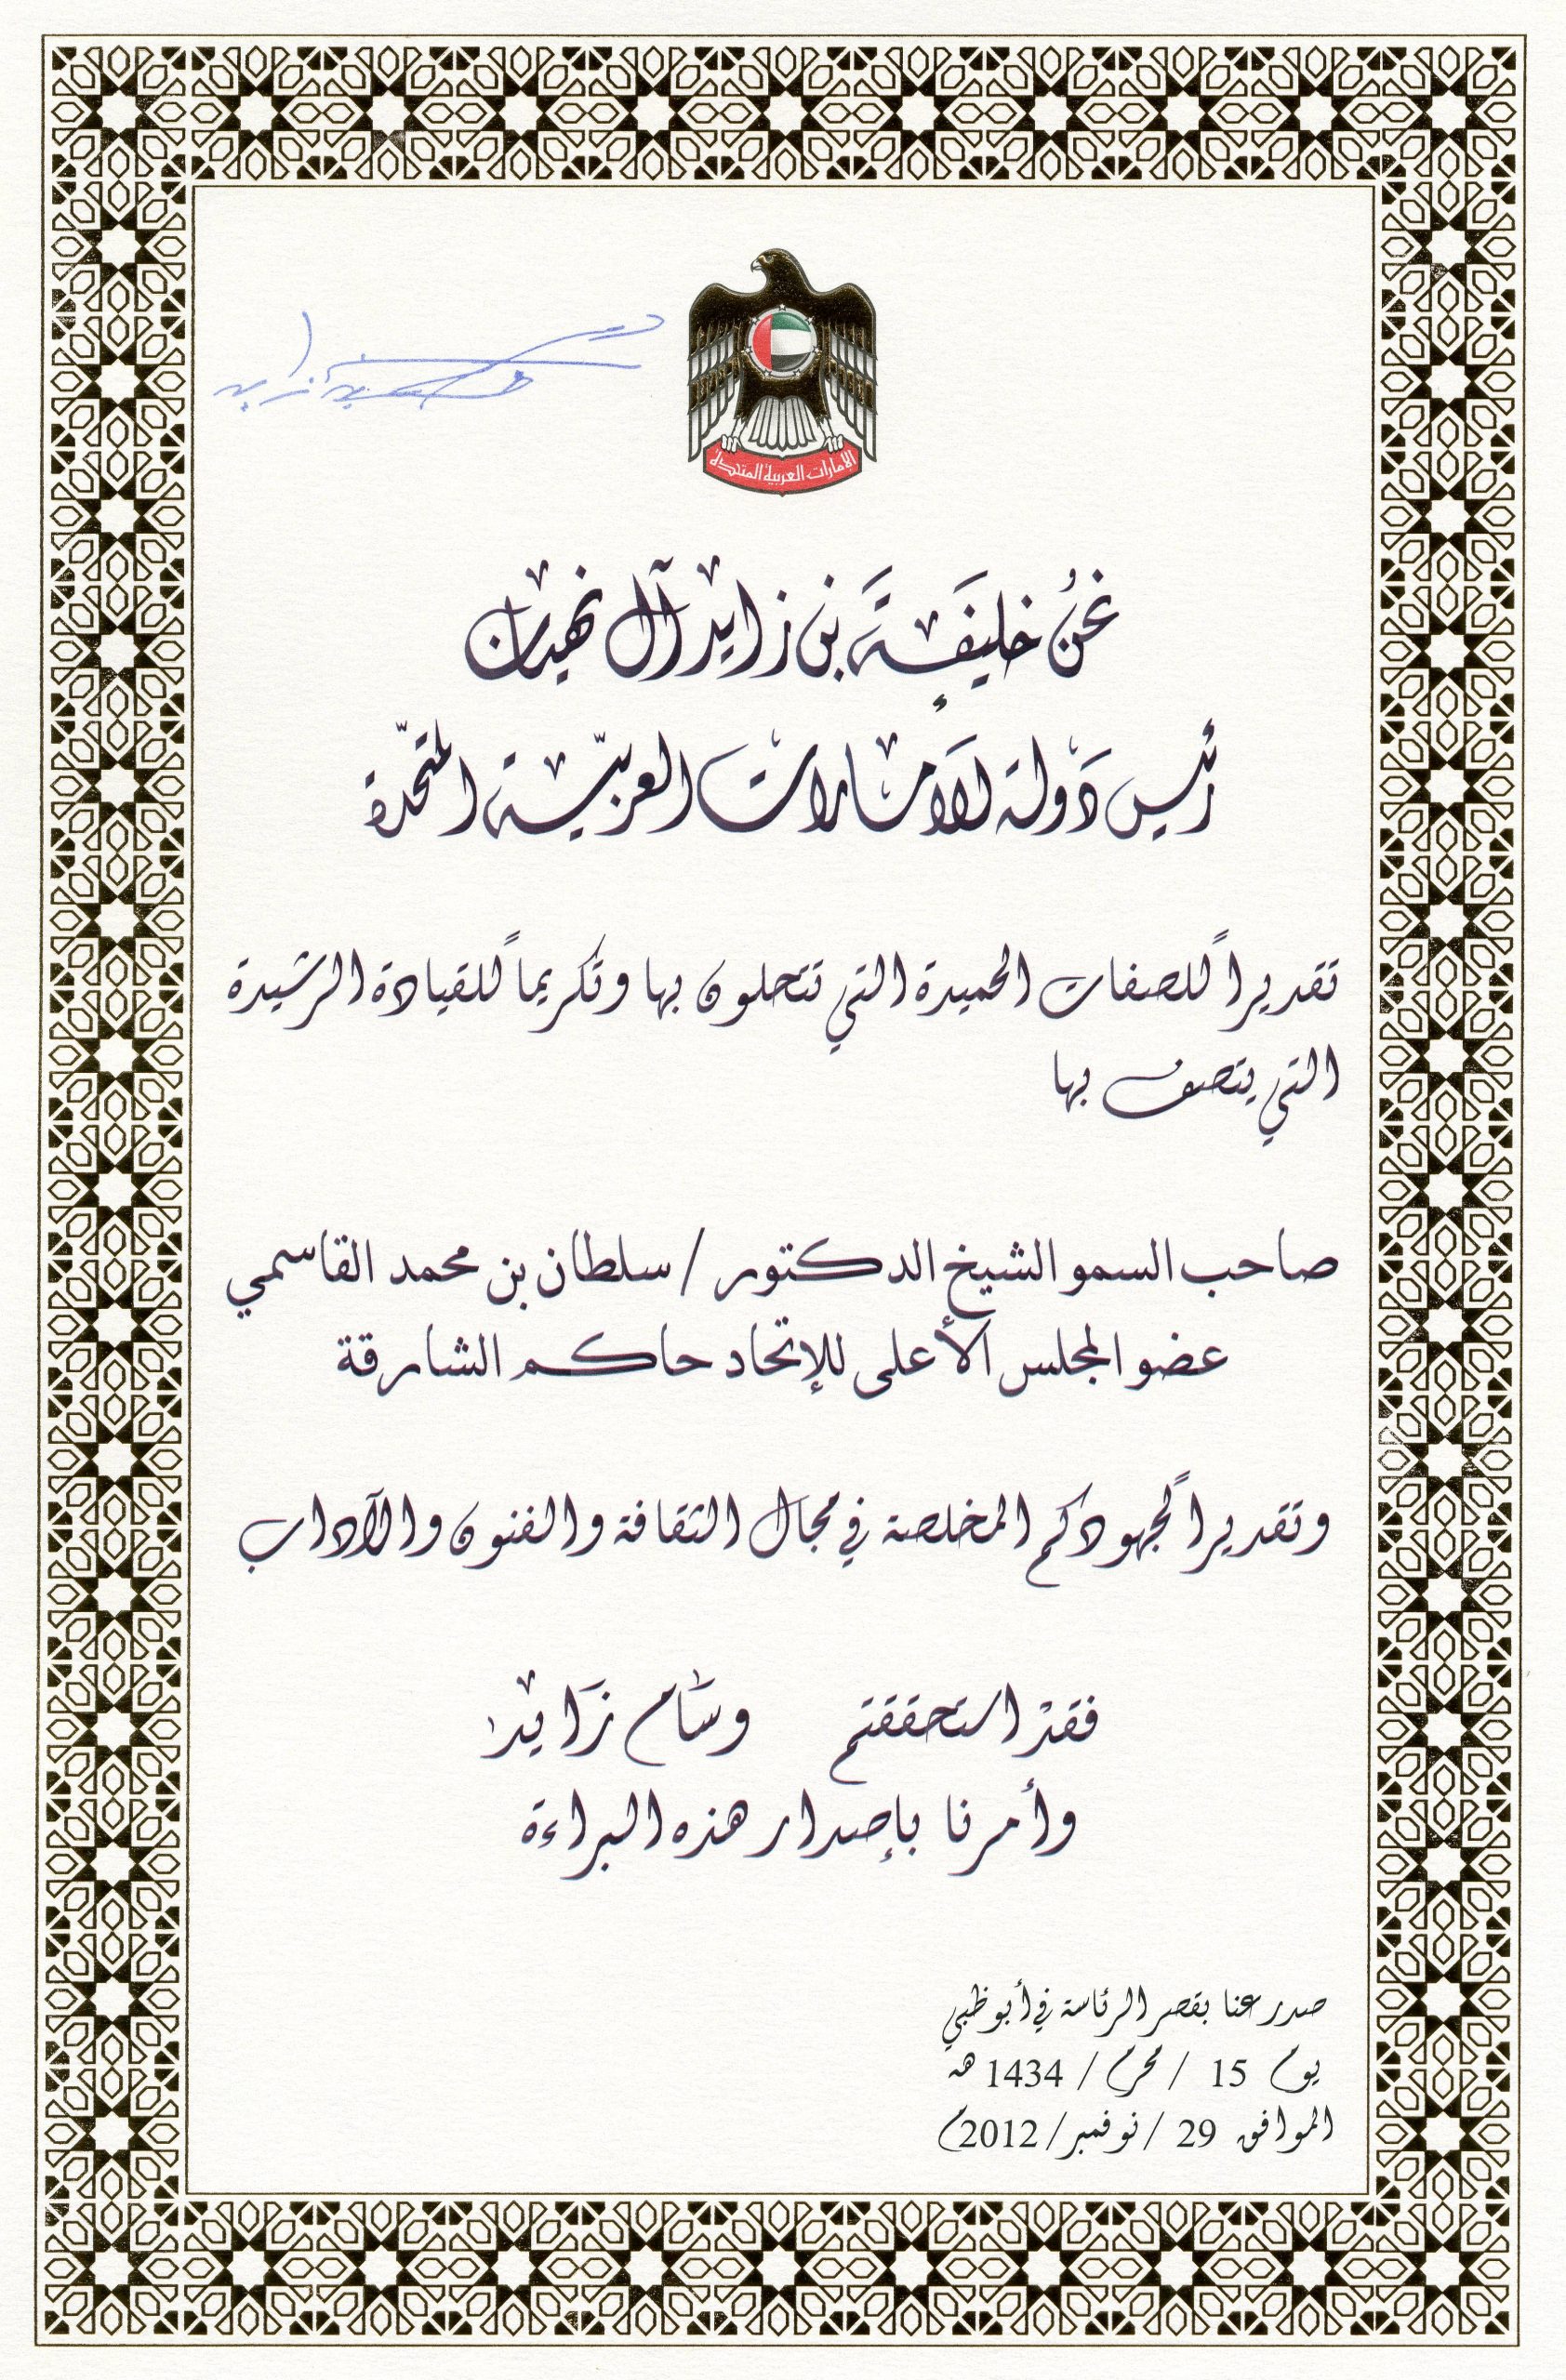 الإمارات العربية المتحدة
نحنُ خليفَة بن زايد آل نهيان
رئيس دَولة الإمَارات العربيّة المتحّدة
تقديراً للصفات الحميدة التي تتحلون بها وتكريماً للقيادة الرشيدة
التي يتصف بها
صاحب السمو الشيخ الدكتور / سلطان بن محمد القاسمي
عضو المجلس الأعلى للإتحاد حاكم الشارقة
وتقديراً لجهودكم المخلصة في مجال الثقافة والفنون والآداب
فقد استحققتم وسَام زَايد
وأمرنا بإصدار هذه البراءة
صدر عنا بقصر الرئاسة في أبوظبي
يوم 15 / محرم / 1434 هـ
الموافق 29 / نوفمبر / 2012م